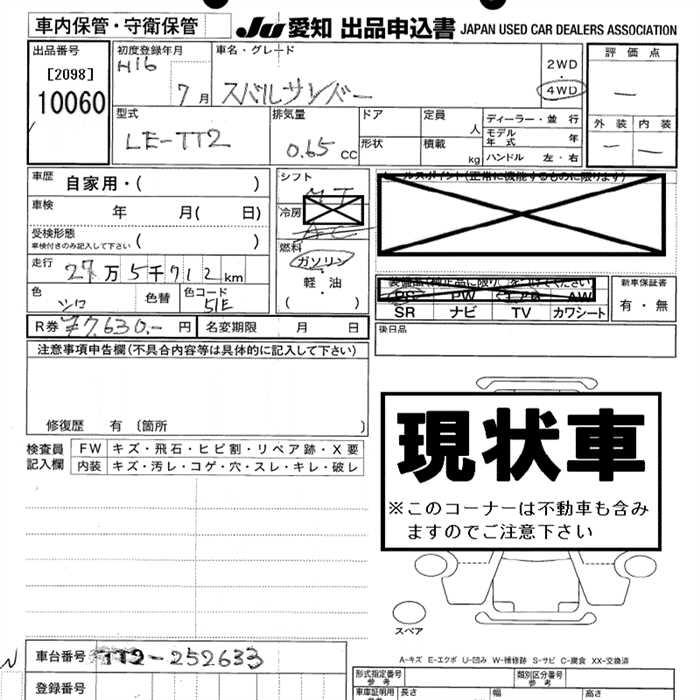 車内保管・守衛保管
JU 愛知 出品申込書 JAPAN USED CAR DEALERS ASSOCIATION
出品番号
[2098]
10060
初度登録年月
H16
7月
車名・グレード
スバルサンバー
2WD
4WD
評価点
—
外装 内装
— —
型式
LE-TT2
排気量
0.65 cc
ドア
定員
人
形状
積載
kg
ディーラー・並行
モデル年式 年
ハンドル 左・右
車歴 自家用・( )
車検 年 月( 日)
受検形態
車検付きのみ記入して下さい ( )
走行 27万5千712km
色 シロ 色替 色コード 51E
R券 ¥7,630.- 円 名変期限 月 日
シフト
冷房
燃料
ガソリン
軽・油
( )
セールスポイント(正常に機能するものに限ります)
SR ナビ TV カワシート
新車保証書
有・無
後日品
注意事項申告欄(不具合内容等は具体的に記入して下さい)
修復歴 有〔箇所 〕
検査員記入欄
FW キズ・飛石・ヒビ割・リペア跡・X要
内装 キズ・汚レ・コゲ・穴・スレ・キレ・破レ
現状車
※このコーナーは不動車も含みますのでご注意下さい
スペア
A-キズ E-エクボ U-凹み W-補修跡 S-サビ C-腐食 XX-交換済
車台番号 TT2-252633
登録番号
形式指定番号
参考
類別区分番号
参考
車庫証明用
長さ
幅
高さ